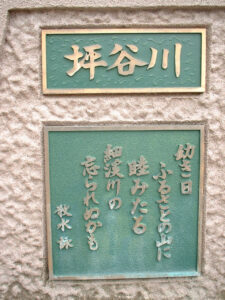 坪谷川
幼き日
ふるさとの山に
睦みたる
細渓川の
忘られぬかも
牧水 詠